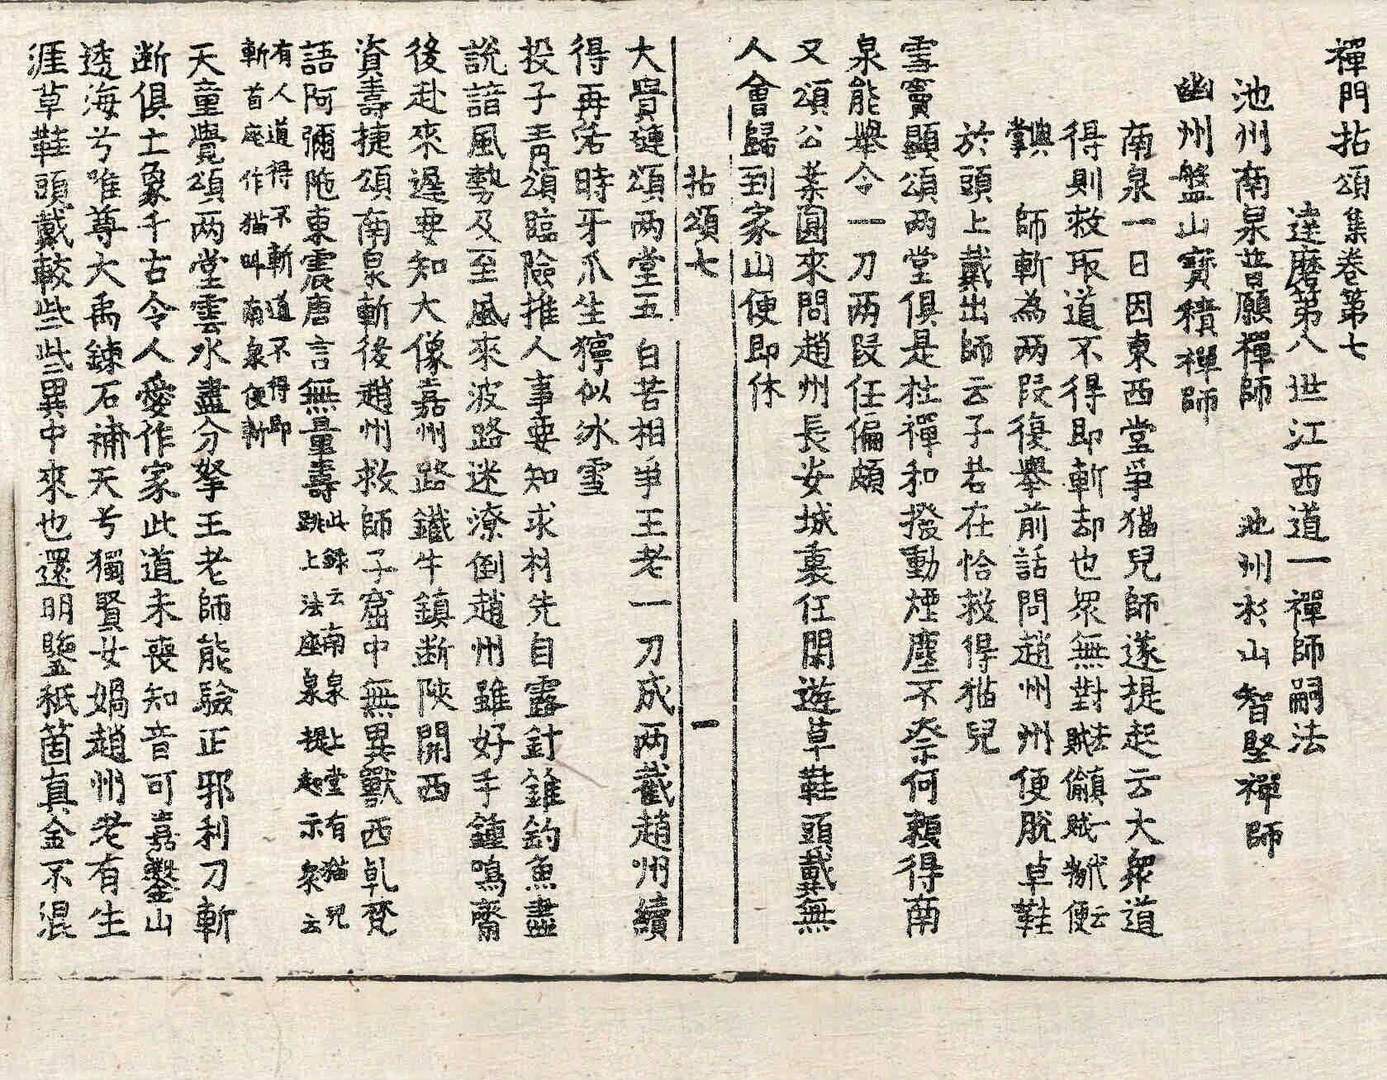 禪門拈頌集卷第七
達磨第八世江西道一禪師嗣法
池州南泉普願禪師　池州杉山智堅禪師
幽州盤山寶積禪師
南泉一日因東西堂爭猫兒師遂提起云大衆道
得則救取道不得即斬却也衆無對法眞一代云賊偸賊物便
與掌　師斬爲兩段復擧前話問趙州州便脫草鞋
於頭上戴出師云子若在恰救得猫兒
雪竇顯頌兩堂俱是杜禪和撥動煙塵不奈何賴得南
泉能擧令一刀兩段任偏頗
又頌公案圓來問趙州長安城裏任閑遊草鞋頭戴無
人會歸到家山便即休
拈頌七　一
大覺璉頌兩堂五白苦相爭王老一刀成兩截趙州續
得再活時牙爪生獰似冰雪
投子靑頌臨險推人事要知求材先自露針錐釣魚盡
說諳風勢及至風來波路迷潦倒趙州雖好手鐘鳴齋
後赴來遲要知大像嘉州路鐵牛鎭斷陝關西
資壽捷頌南泉斬後趙州救師子窟中無異獸西乹梵
語阿彌陁東震唐言無量壽此錄云南泉上堂有猫兒
跳上法座泉提起示衆云
有人道得不斬道不得即
斬首座作猫叫南泉便斬
天童覺頌兩堂雲水盡分拏王老師能驗正邪利刀斬
斷俱亡象千古令人愛作家此道未喪知音可嘉鑿山
透海兮唯尊大禹鍊石補天兮獨賢女媧趙州老有生
涯草鞋頭戴較些些異中來也還明鑒秪箇眞金不混